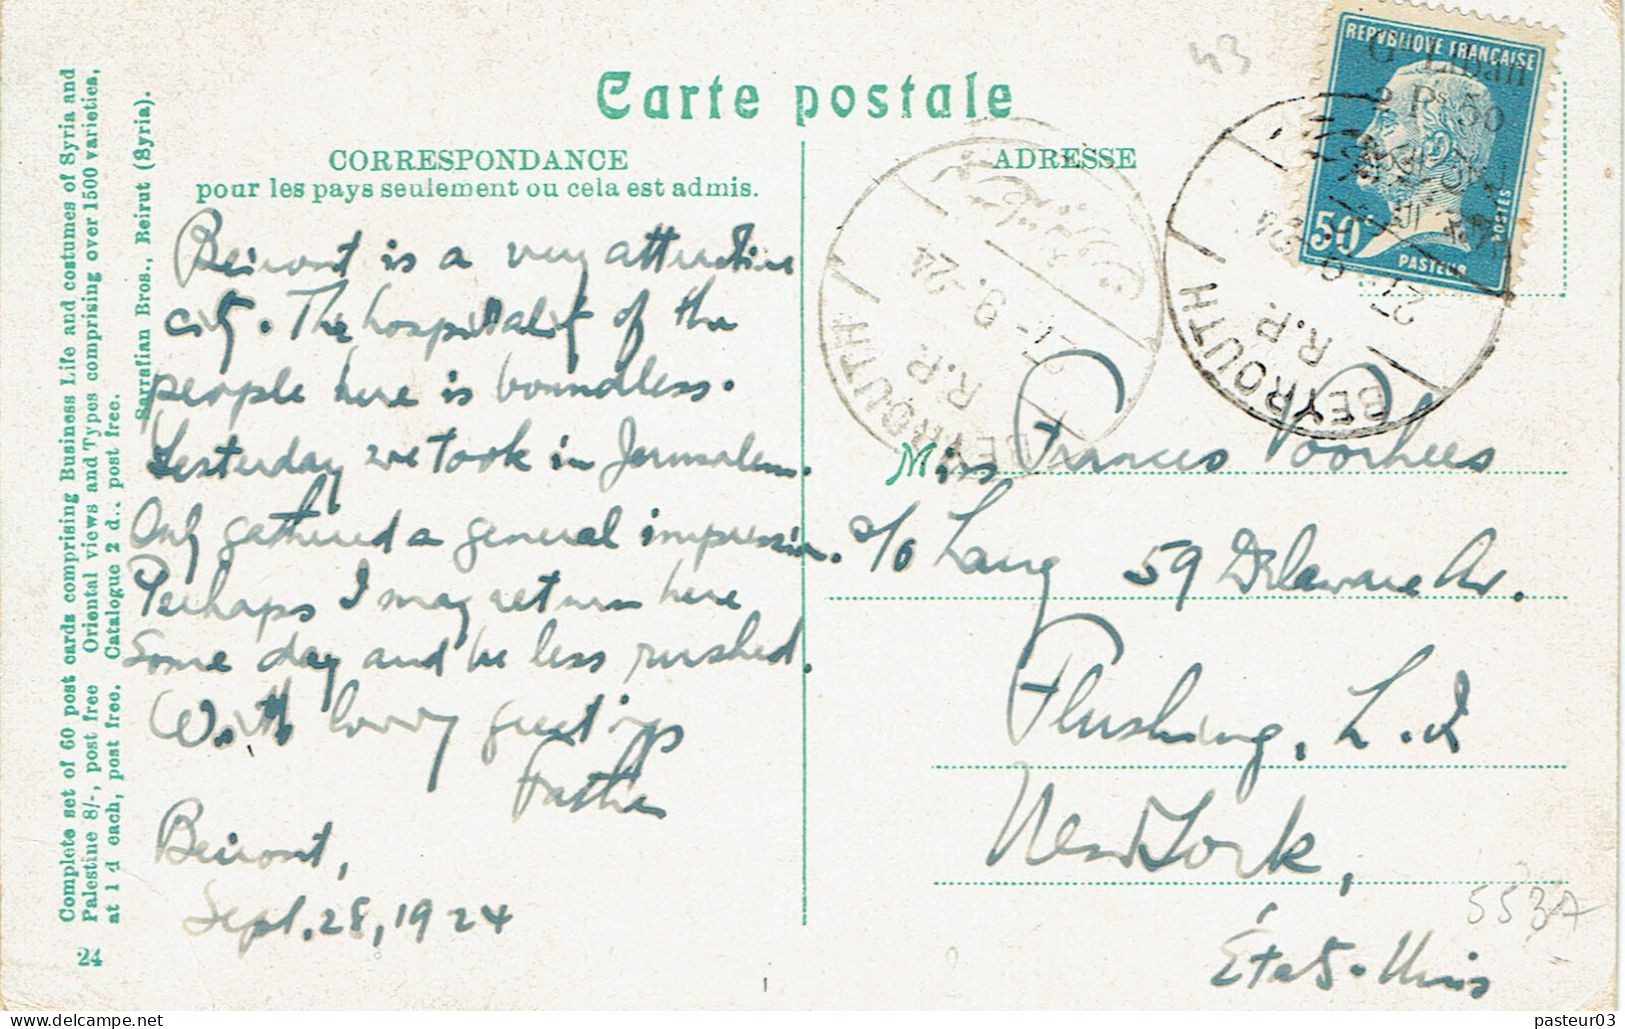 Carte postale
CORRESPONDANCE
pour les pays seulement ou cela est admis.
ADRESSE
Complete set of 60 post cards comprising Business Life and costumes of Syria and
Palestine 8/-, post free Oriental views and Types comprising over 1500 varieties,
at 1 d each, post free. Catalogue 2 d.. post free.
Sarrafian Bros., Beirut (Syria).
24
Beirout is a very attractive
city. The hospitality of the
people here is boundless.
Yesterday we took in Jerusalem.
Only gathered a general impression.
Perhaps I may return here
some day and be less rushed.
With loving greetings
Father
Beirout,
Sept. 28, 1924
43
REPVBLIQUE FRANCAISE
Gd Liban
2 Ps 50
50c
POSTES
PASTEUR
BEYROUTH
R.P.
27-9-24
BEYROUTH
R.P.
9-24
Miss Frances Voorhees
c/o Lang 59 Delaware Av.
Flushing, L.I
New York,
États-Unis
5537
pasteur03